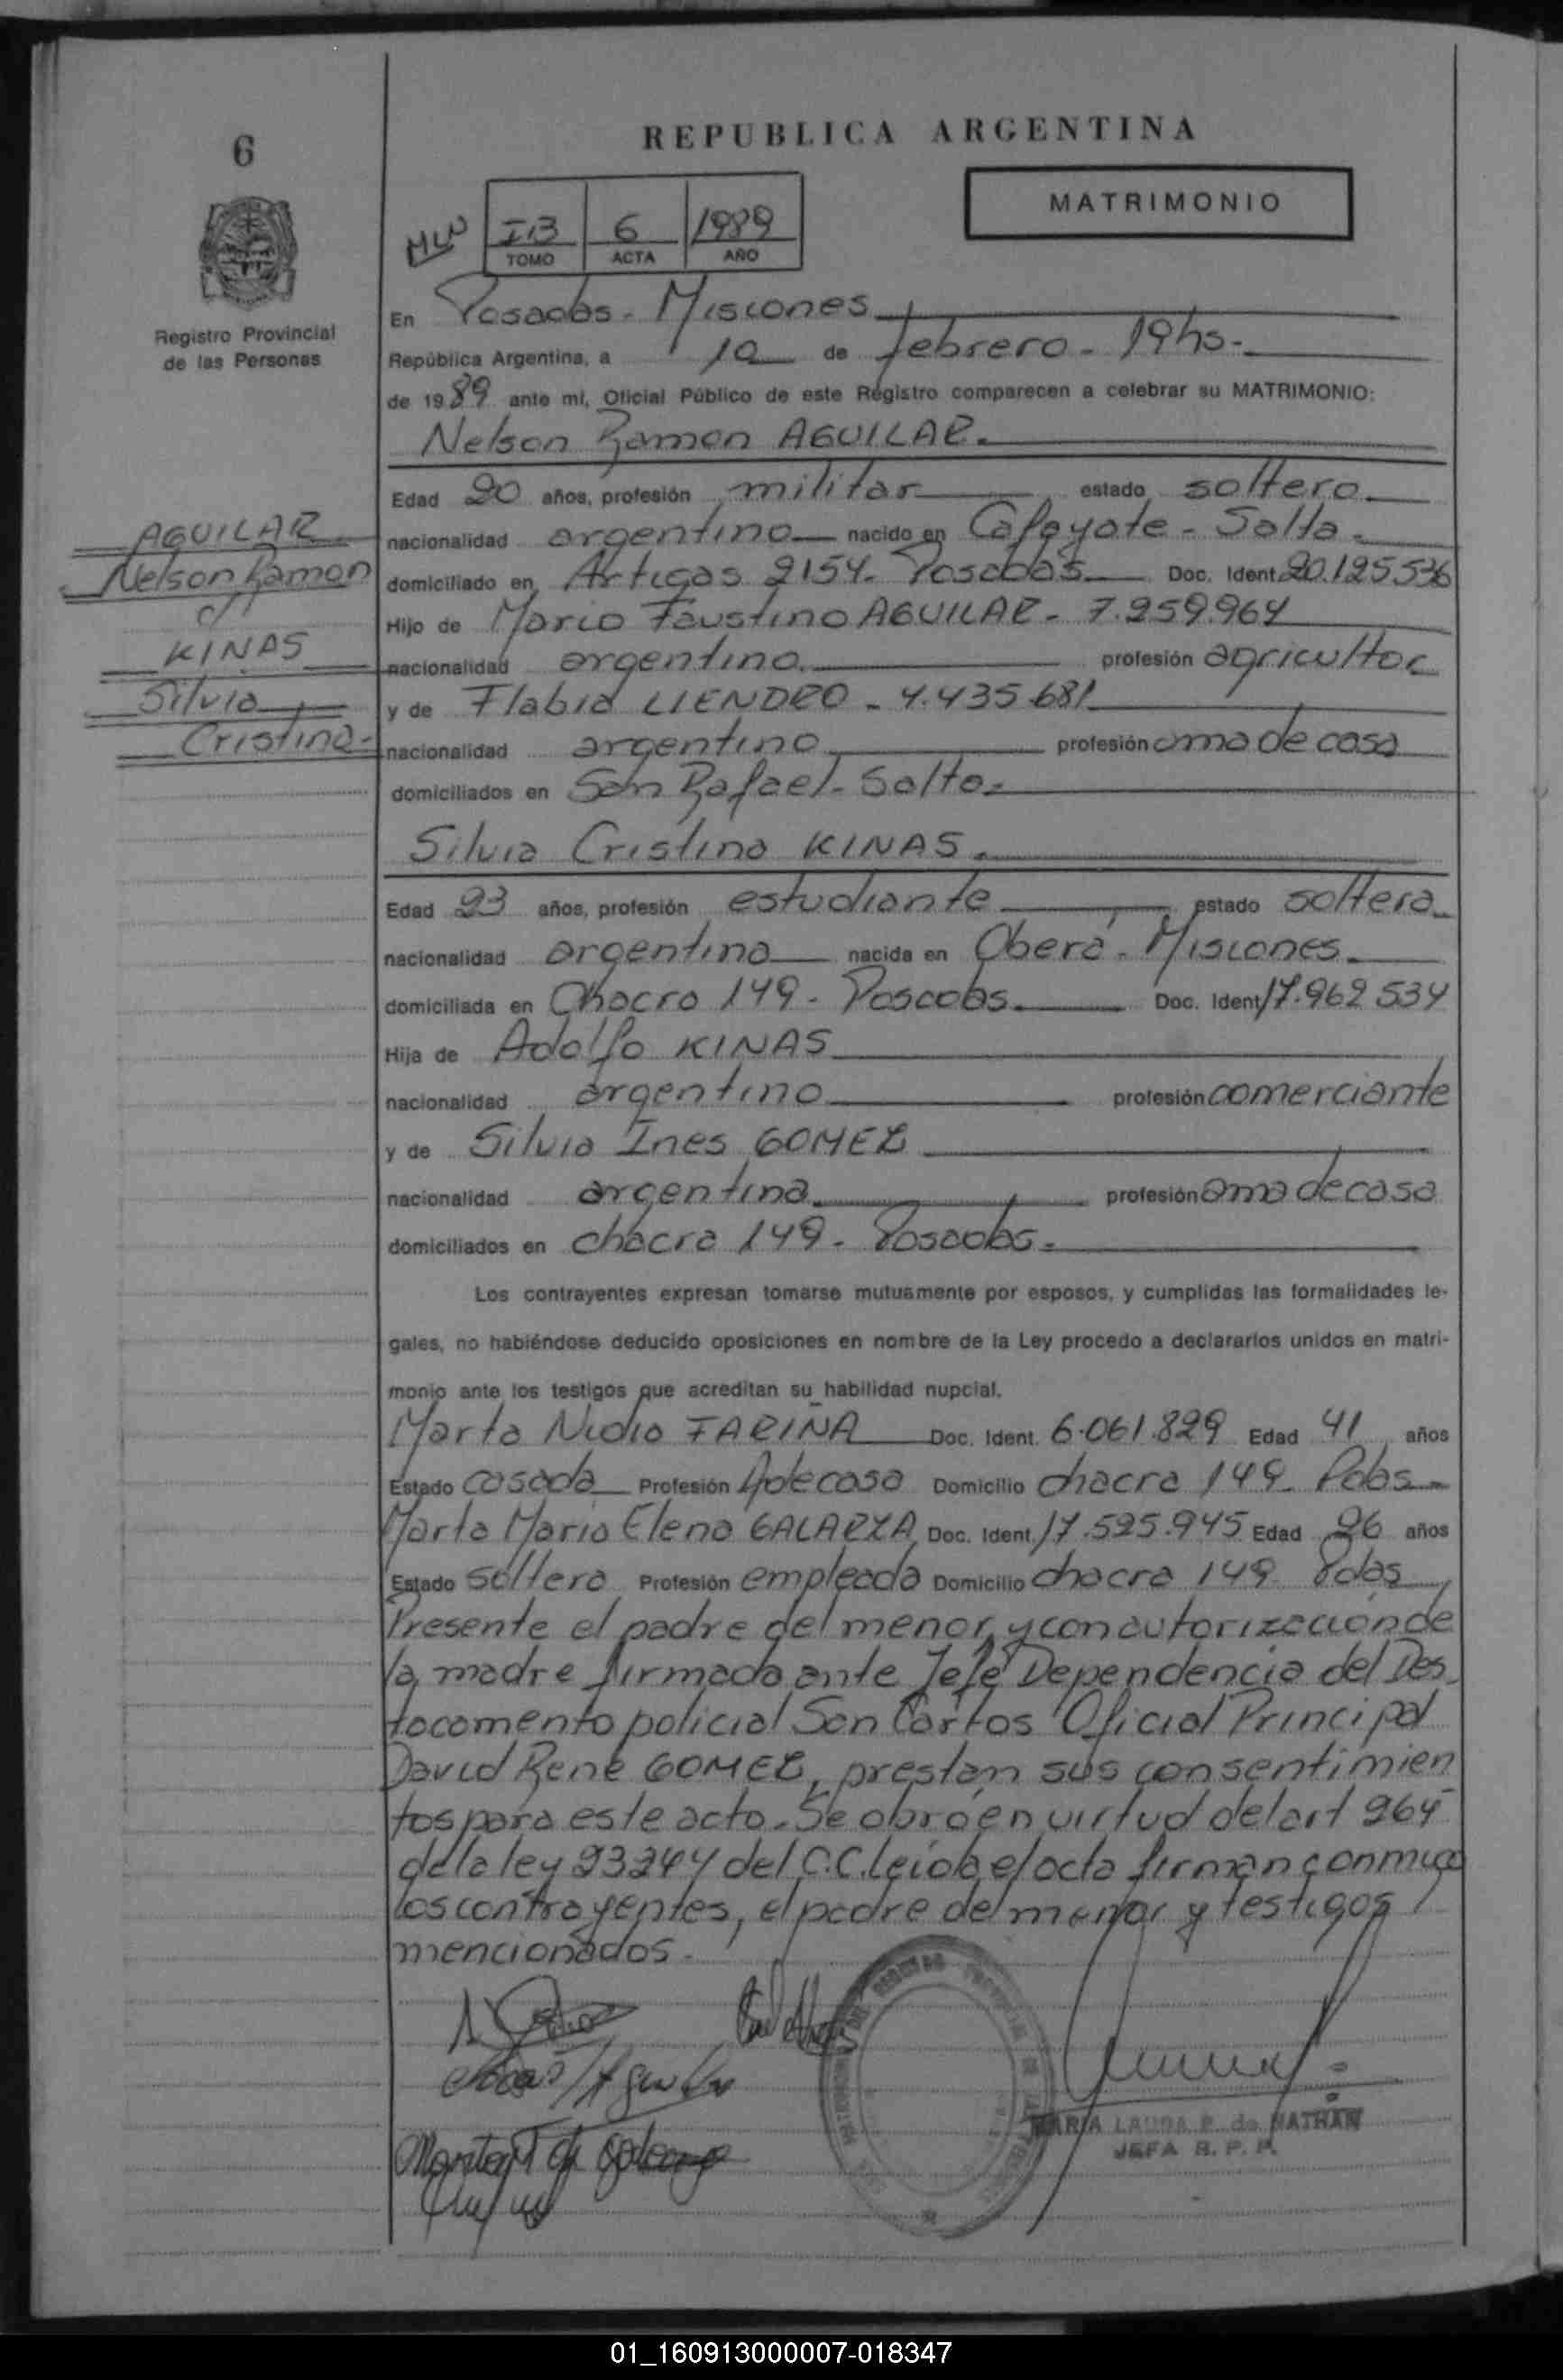 6
REPUBLICA ARGENTINA
MATRIMONIO
MLN
I.B 6 1989
TOMO ACTA AÑO
Registro Provincial
de las Personas
En Posadas - Misiones
República Argentina, a 10 de febrero - 19hs.
de 1989 ante mí, Oficial Público de este Registro comparecen a celebrar su MATRIMONIO:
Nelson Ramon AGUILAR.
Edad 20 años, profesión militar estado soltero
AGUILAR
Nelson Ramon
c/
KINAS
Silvia
Cristina-
nacionalidad argentino nacido en Cafayate - Salta.
domiciliado en Artigas 2154. Posadas Doc. Ident. 20.125.536
Hijo de Mario Faustino AGUILAR - 7.259.964
nacionalidad argentino. profesión agricultor
y de Flabia LIENDRO - 4.435.681
nacionalidad argentina profesión ama de casa
domiciliados en San Rafael - Salta.
Silvia Cristina KINAS.
Edad 23 años, profesión estudiante estado soltera
nacionalidad argentina nacida en Oberá - Misiones.
domiciliada en Chacra 149 - Posadas. Doc. Ident. 17.962.534
Hija de Adolfo KINAS
nacionalidad argentino profesión comerciante
y de Silvia Ines GOMEZ
nacionalidad argentina profesión ama de casa
domiciliados en chacra 149 - Posadas.
Los contrayentes expresan tomarse mutuamente por esposos, y cumplidas las formalidades le-
gales, no habiéndose deducido oposiciones en nombre de la Ley procedo a declararlos unidos en matri-
monio ante los testigos que acreditan su habilidad nupcial.
Marta Nidia FARIÑA Doc. Ident. 6.061.829 Edad 41 años
Estado casada Profesión A de casa Domicilio chacra 149 Pdas
Marta Maria Elena GALARZA Doc. Ident. 17.525.945 Edad 26 años
Estado soltera Profesión empleada Domicilio chacra 149 Pdas
Presente el padre del menor, y con autorización de
la madre firmada ante Jefe Dependencia del Des
tacamento policial San Carlos Oficial Principal
David René GOMEZ, prestan sus consentimien
tos para este acto. Se obró en virtud del art 264
de la ley 23244 del C.C. leida el acta firman conmigo
los contrayentes, el padre del menor y testigos
mencionados.
MARIA LAURA P. de NATHAN
JEFA R. P. P.
01_160913000007-018347